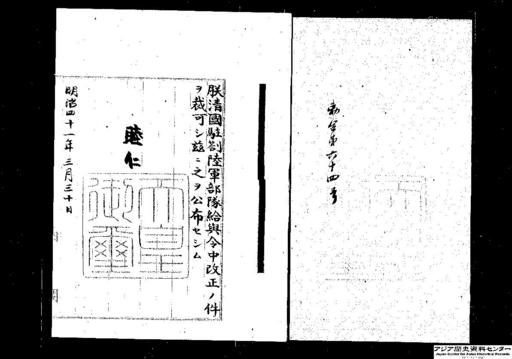 勅令第六十四号
朕清國駐劄陸軍部隊給與令中改正ノ件
ヲ裁可シ玆ニ之ヲ公布セシム
睦仁
天皇
御璽
明治四十一年三月三十日
アジア歴史資料センター
Japan Center for Asian Historical Records